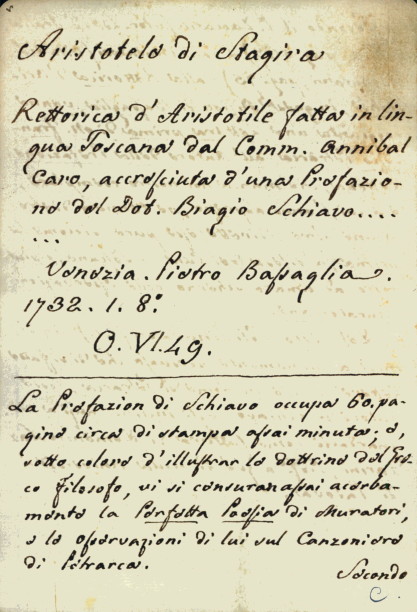 Aristotele di Stagira
Rettorica d'Aristotile fatta in lin-
gua Toscana dal Comm. Annibal
Caro, accresciuta d'una Prefazio-
ne del Dot. Biagio Schiavo....
...
Venezia. Pietro Bassaglia.
1732. 1. 8°.
O. VI. 49.
La Prefazion di Schiavo occupa 60. pa-
gine circa di stampa assai minuta; e,
sotto colore d'illustrar le dottrine del Gre-
co filosofo, vi si censuran assai acerba-
mente la Perfetta Poesia di Muratori,
e le osservazioni di lui sul Canzoniere
di Petrarca.
Secondo
C.